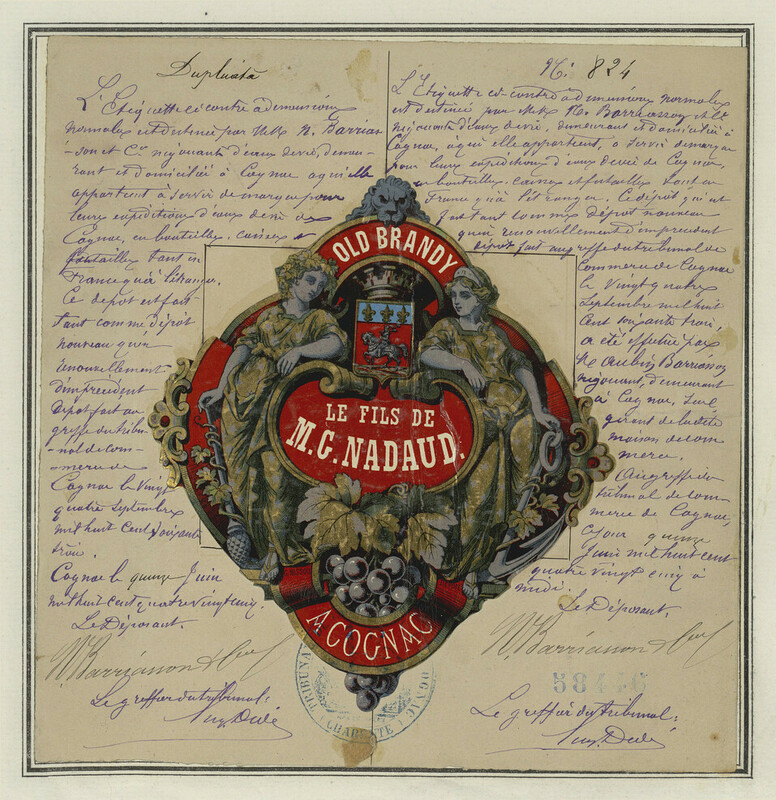 Duplicata
L'Etiquette ci contre a demensions
normales est destinée par MMrs N. Barrias-
-son et Cie négociants d'eaux de vie, demeu-
rant et domiciliés à Cognac à qui elle
appartient à servir de marque pour
leurs expéditions d'eaux de vie de
Cognac, en bouteilles, caisses et
futailles tant en
France qu'à l'étranger.
Ce dépôt est fait
tant comme dépôt
nouveau qu'en
renouvellement
d'un précédent
dépôt fait au
greffe du tribu-
nal de com-
merce de
Cognac le vingt
quatre septembre
mil huit cent soixante
trois.
Cognac le quinze Juin
mil huit cent quatre vingt cinq.
Le Déposant.
N. Barriasson &
Le greffier du tribunal:
No: 824
L'Etiquette ci-contre à demensions normales
est destinée par MMrs N. Barriasson & Cie
négociants d'eaux de vie, demeurant et domiciliés à
Cognac, à qui elle appartient, à servir de marque
pour leurs expéditions d'eaux de vie de Cognac,
en bouteilles, caisses et futailles tant en
France qu'à l'étranger. Ce dépôt qui est
fait tant comme dépôt nouveau
qu'en renouvellement d'un précédent
dépôt fait au greffe du tribunal de
Commerce de Cognac
le vingt quatre
Septembre mil huit
cent soixante trois,
a été effectué par
Mr Aubin Barriasson
négociant, demeurant
à Cognac, seul
gérant de ladite
maison de com
merce.
Au greffe du
tribunal de com-
merce de Cognac,
ce jour quinze
Juin mil huit cent
quatre vingt cinq à
midi.
Le Déposant.
N. Barriasson &
58446
Le greffier du tribunal:
OLD BRANDY
LE FILS DE
M.G. NADAUD.
A COGNAC
TRIBUNAL
COGNAC
CHARENTE